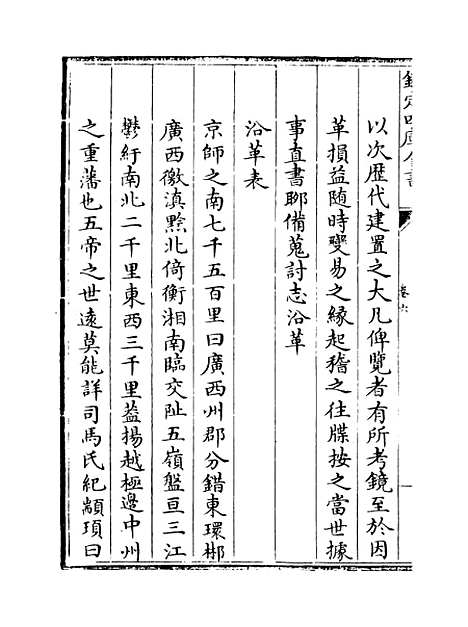 欽定四庫全書
卷六
以次歴代建置之大凡俾覽者有所考鏡至於因
革損益随時變易之縁起稽之往牒按之當世據
事直書聊備蒐討志沿革
沿革表
京師之南七千五百里曰廣西州郡分錯東環郴
廣西徼滇黔北倚衡湘南臨交阯五嶺盤亘三江
鬱紆南北二千里東西三千里葢揚越極邊中州
之重藩也五帝之世逺莫能詳司馬氏紀顓頊曰